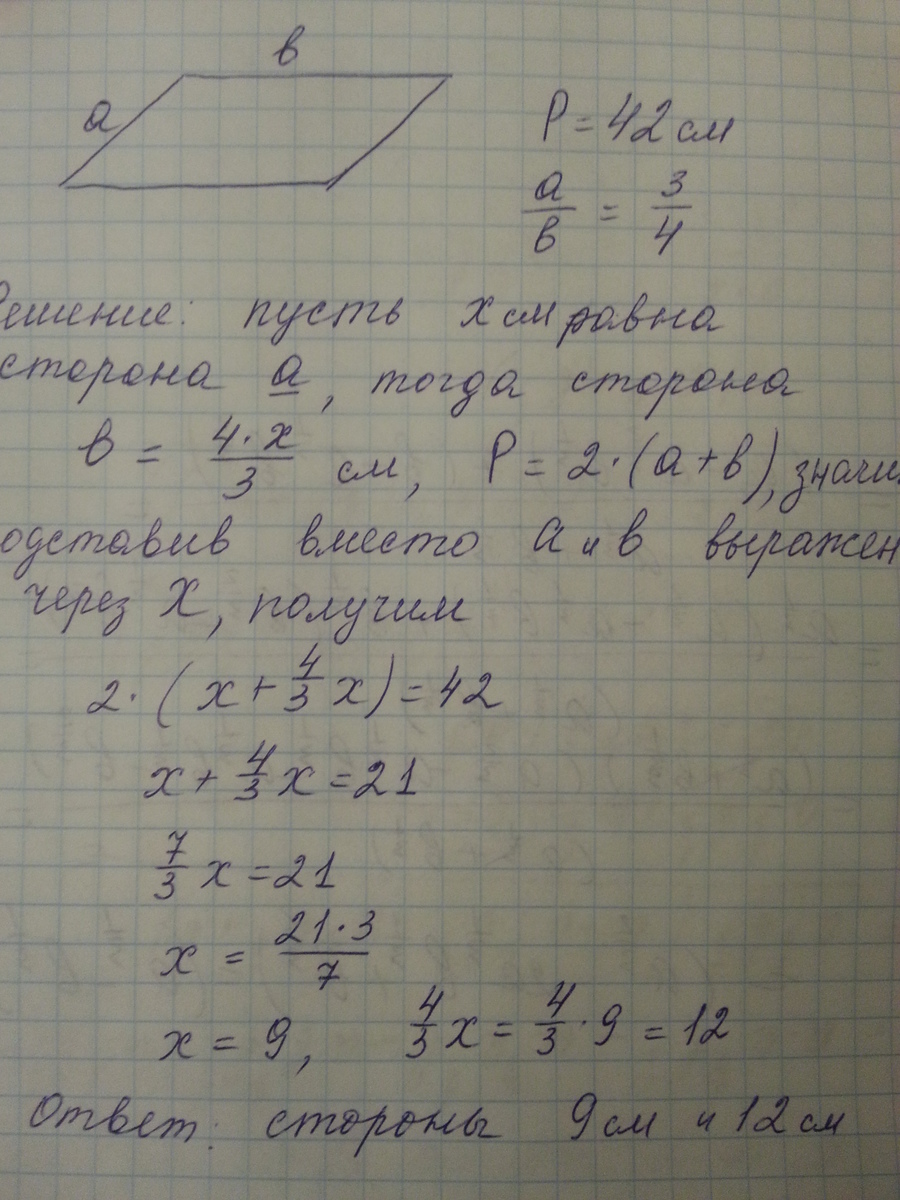 в
a
P = 42 см
a/в = 3/4
Решение: пусть x см равна
сторона a, тогда сторона
в = 4·x/3 см, P = 2·(a+в), значи
одставив вместо a и в выражен
через X, получим
2·(x+4/3x)=42
x+4/3x=21
7/3x=21
x = 21·3/7
x = 9, 4/3x = 4/3·9 = 12
Ответ: стороны 9 см и 12 см